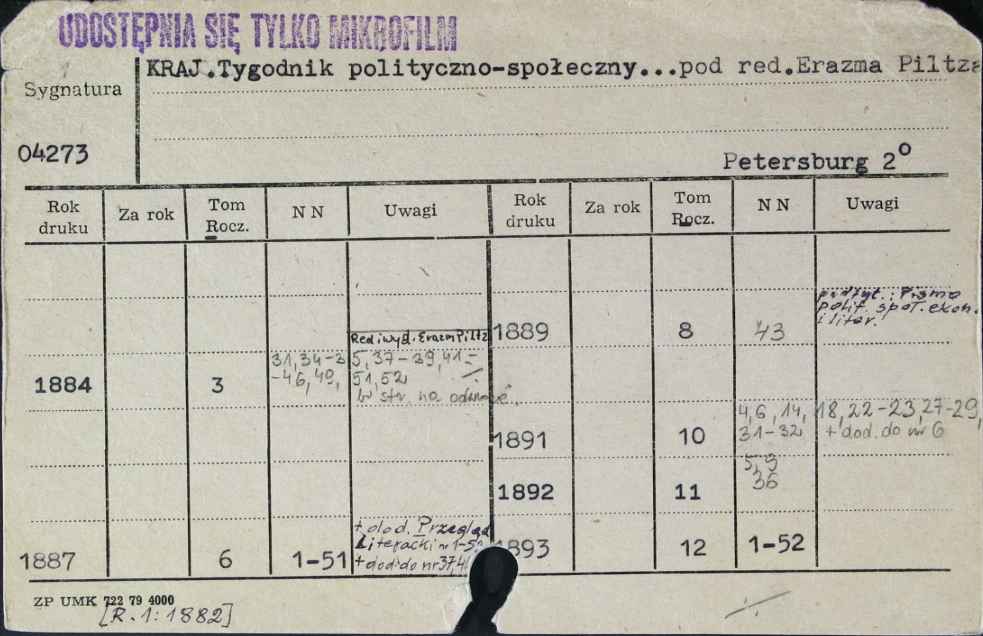 UDOSTĘPNIA SIĘ TYLKO MIKROFILM
KRAJ.Tygodnik polityczno-społeczny...pod red.Erazma Piltza
Sygnatura
04273
Petersburg 2º
Rok druku Za rok Tom Rocz. NN Uwagi Rok druku Za rok Tom Rocz. NN Uwagi
podtyt.: Pismo
polit. społ. ekon.
i liter.
1889 8 43
Red i wyd. Erazm Piltz
31, 34-35, 37-39, 41-
-46, 49, 51, 52
1884 3
b. str. na
4,6, 14, 18, 22-23, 27-29,
31-32 + dod. do nr 6
1891 10
5,9
36
1892 11
+ dod. Przegląd
Literacki nr 1-52
+ dod do nr 37,4
1887 6 1-51
1893 12 1-52
ZP UMK 722 79 4000
[R.1:1882]